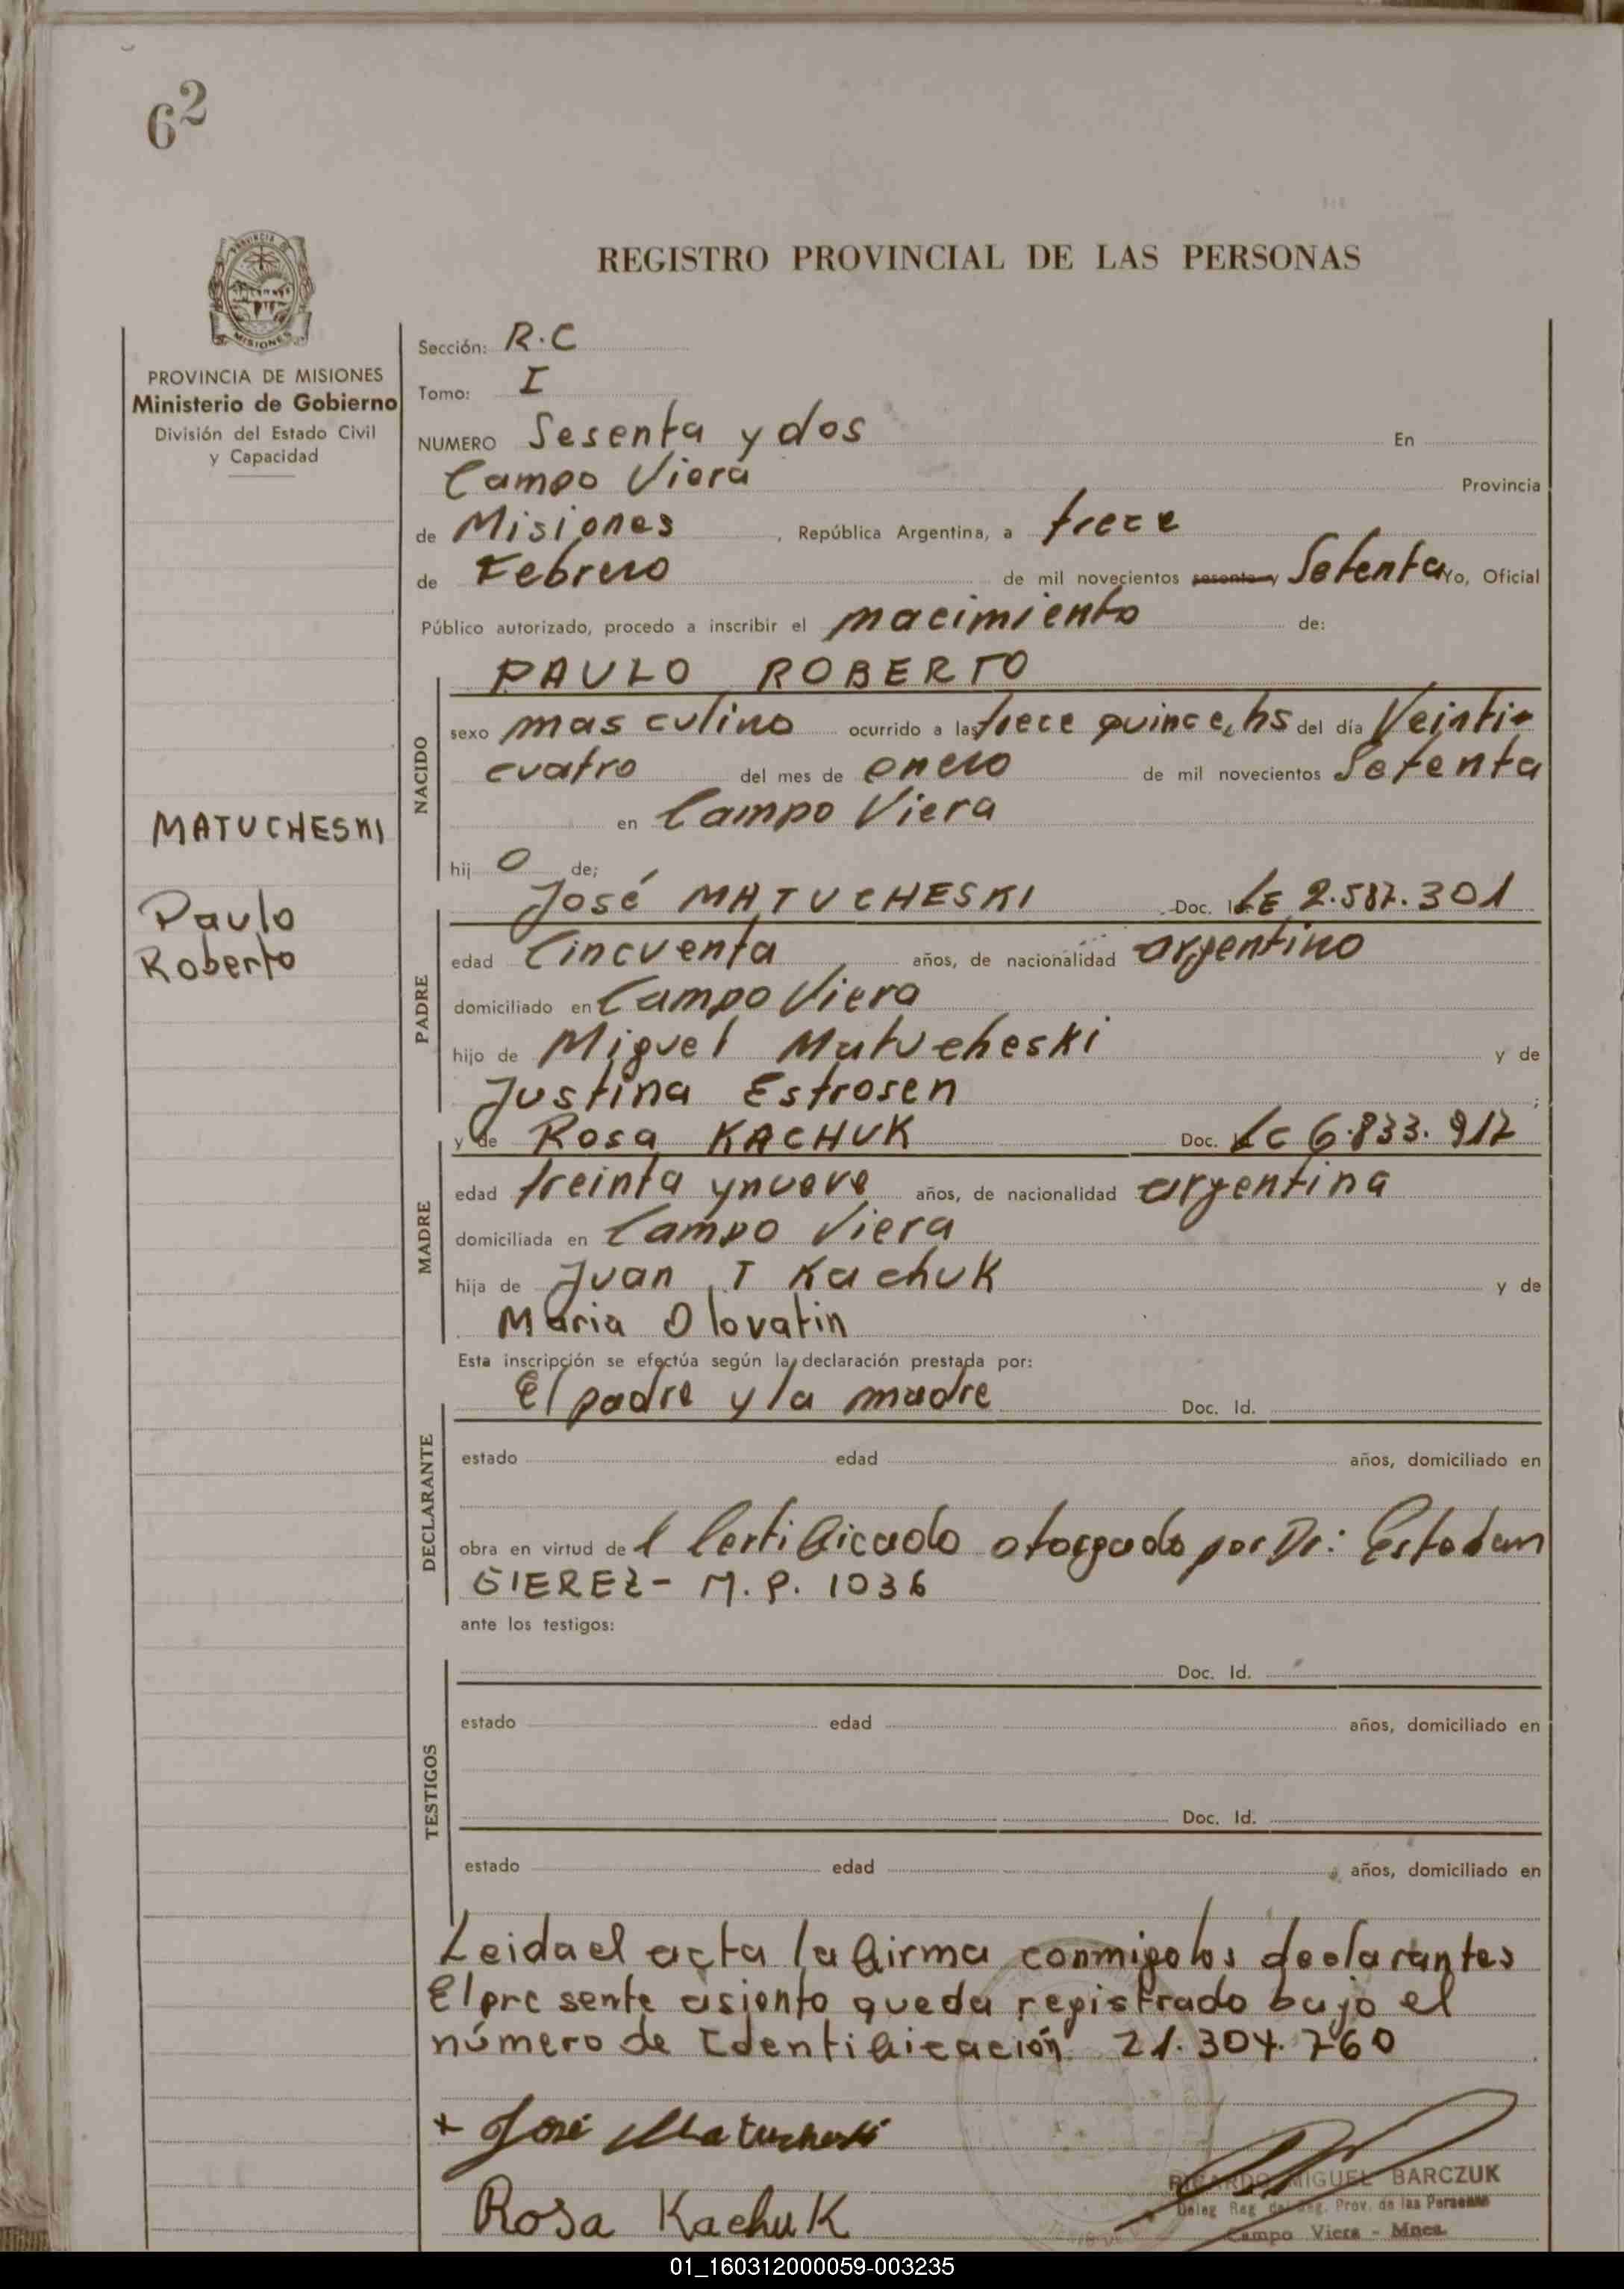 62
REGISTRO PROVINCIAL DE LAS PERSONAS
PROVINCIA DE MISIONES
Ministerio de Gobierno
División del Estado Civil
y Capacidad
MATUCHESKI
Paulo
Roberto
Sección: R.C
Tomo: I
NUMERO Sesenta y dos En
Campo Viera Provincia
de Misiones, República Argentina, a trece
de Febrero de mil novecientos sesenta y Setenta Yo, Oficial
Público autorizado, procedo a inscribir el nacimiento de:
NACIDO
PAULO ROBERTO
sexo masculino ocurrido a las trece quince, hs del día Veinti-
cuatro del mes de enero de mil novecientos Setenta
en Campo Viera
hij o de;
PADRE
José MATUCHESKI Doc. LE 2.587.301
edad Cincuenta años, de nacionalidad argentino
domiciliado en Campo Viera
hijo de Miguel Matucheski y de
Justina Estrosen;
MADRE
y de Rosa KACHUK Doc. LC 6.833.917
edad treinta y nueve años, de nacionalidad argentina
domiciliada en Campo Viera
hija de Juan T Kachuk y de
Maria Olovatin
Esta inscripción se efectúa según la declaración prestada por:
DECLARANTE
El padre y la madre Doc. Id.
estado edad años, domiciliado en
obra en virtud del Certificado otorgado por Dr: Esteban
GIEREZ - M.P. 1036
ante los testigos:
TESTIGOS
Doc. Id.
estado edad años, domiciliado en
Doc. Id.
estado edad años, domiciliado en
Leida el acta la firma conmigo los declarantes
El presente asiento queda registrado bajo el
número de Identificación 21.304.760
+ José Matucheski
Rosa Kachuk
RICARDO MIGUEL BARCZUK
Deleg Reg del Reg. Prov. de las Personas
Campo Viera - Mnes.
01_160312000059-003235